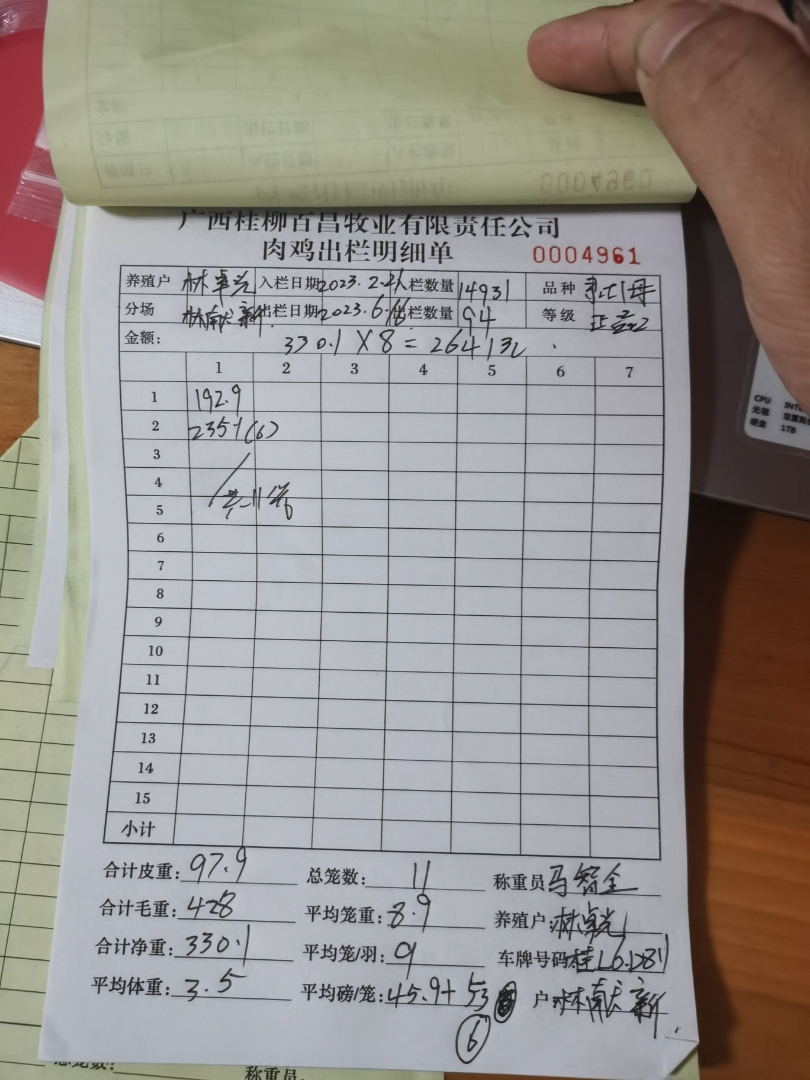 0004960
广西桂柳百昌牧业有限责任公司
肉鸡出栏明细单 0004961
养殖户 林卓光 入栏日期 2023.2.21 入栏数量 14931 品种
分场 林献新 出栏日期 2023.6.16 出栏数量 94 等级
金额: 330.1 X 8 = 2641元
1 2 3 4 5 6 7
1 192.9
2 235.1 (6)
3
4
5 共11笼
6
7
8
9
10
11
12
13
14
15
小计
合计皮重: 97.9 总笼数: 11 称重员 马智全
合计毛重: 428 平均笼重: 8.9 养殖户: 林卓光
合计净重: 330.1 平均笼/羽: 9 车牌号码 桂L6D811
平均体重: 3.5 平均磅/笼: 45.9+53 户: 林献新
6
总笼数: 称重员
CPU INTE
光驱
硬盘 1TB